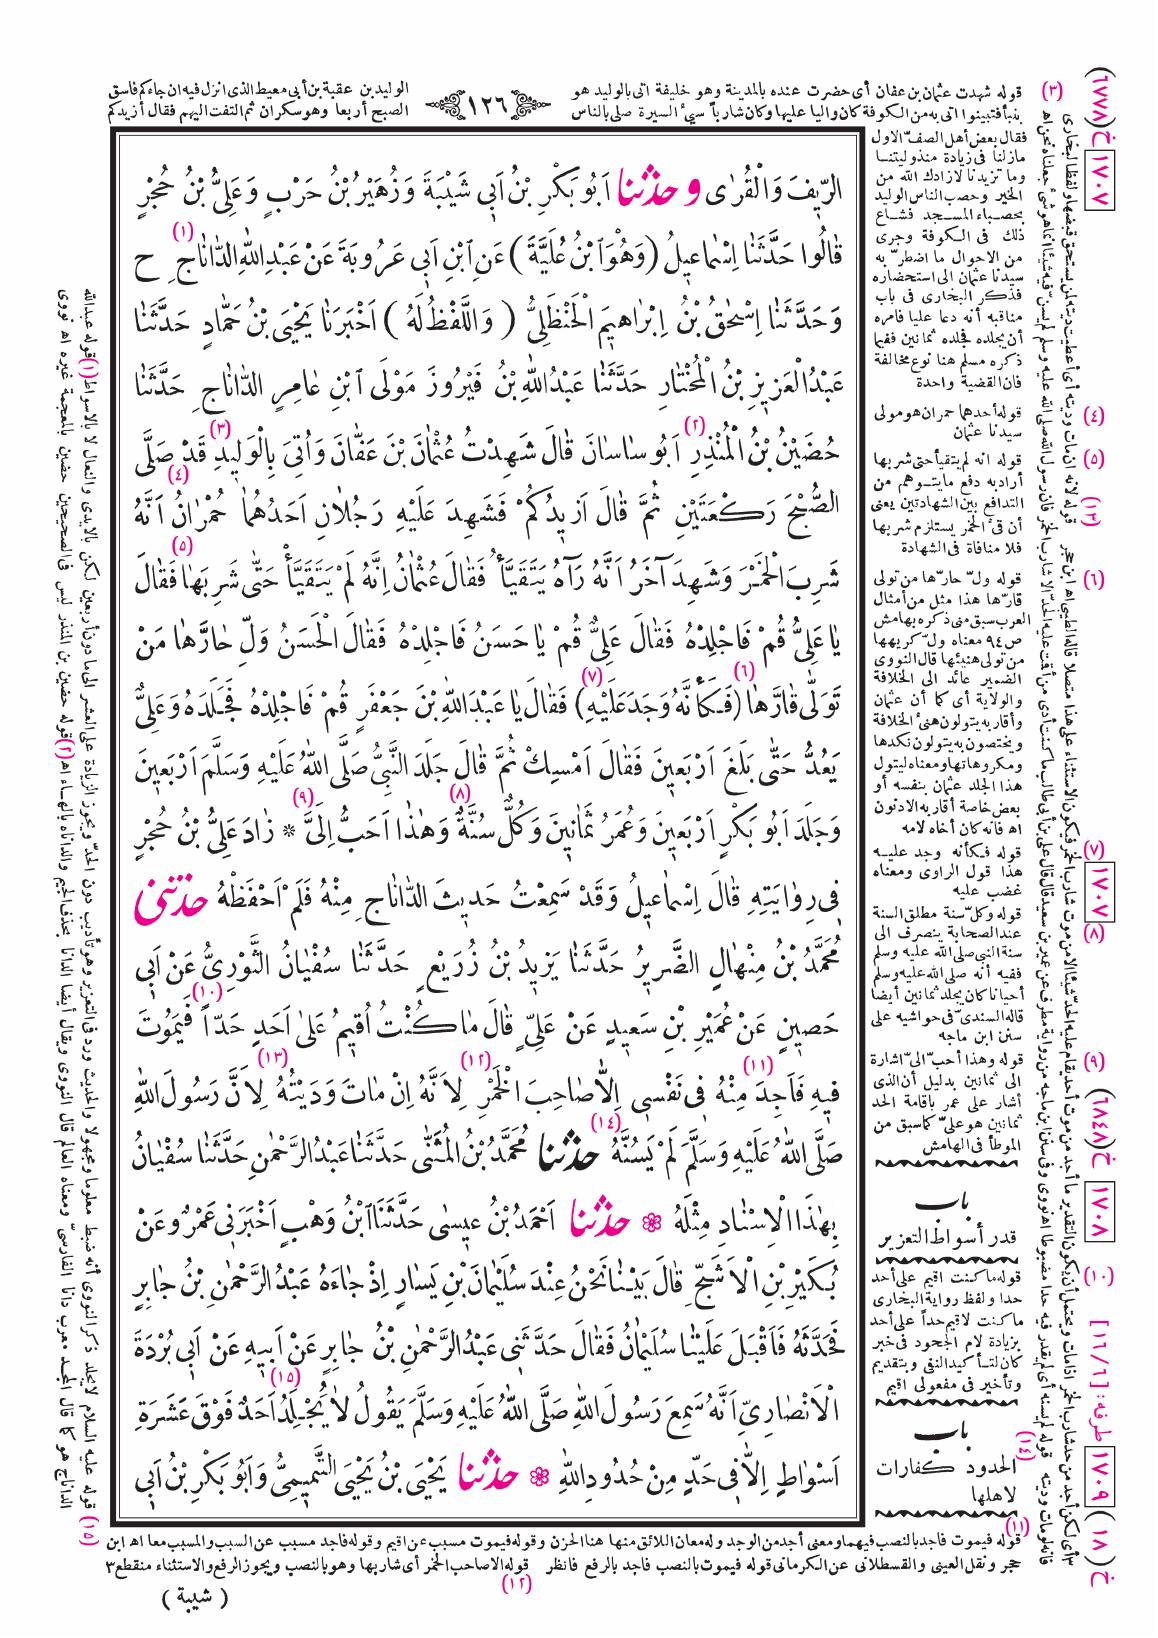 ١٢٦
(٣) قوله شهدت عثمان بن عفان أى حضرت عنده بالمدينة وهو خليفة اتى بالوليد هو الوليد بن عقبة بن أبى معيط الذى انزل فيه ان جاءكم فاسق
بنبأ فتبينوا اتى به من الكوفة كان واليا عليها وكان شارباً سيئ السيرة صلى بالناس الصبح أربعا وهو سكران ثم التفت اليهم فقال أزيدكم
الرِّيفَ وَالْقُرٰى و حدثنا اَبُو بَكْرِ بْنُ اَبِى شَيْبَةَ وَزُهَيْرُ بْنُ حَرْبٍ وَعَلِىُّ بْنُ حُجْرٍ
قٰالُوا حَدَّثَنٰا اِسْمٰاعِيلُ (وَهُوَ ابْنُ عُلَيَّةَ) عَنِ ابْنِ اَبِى عَرُوبَةَ عَنْ عَبْدِ اللّٰهِ الدّٰانٰاجِ (١) ح
وَحَدَّثَنٰا اِسْحٰقُ بْنُ اِبْرٰاهِيمَ الْحَنْظَلِىُّ (وَاللَّفْظُ لَهُ) اَخْبَرَنٰا يَحْيَى بْنُ حَمّٰادٍ حَدَّثَنٰا
عَبْدُ الْعَزِيزِ بْنُ الْمُخْتٰارِ حَدَّثَنٰا عَبْدُ اللّٰهِ بْنُ فَيْرُوزَ مَوْلَى ابْنِ عٰامِرٍ الدّٰانٰاجِ حَدَّثَنٰا
حُضَيْنُ بْنُ الْمُنْذِرِ (٢) اَبُو سٰاسٰانَ قٰالَ شَهِدْتُ عُثْمٰانَ بْنَ عَفّٰانَ وَاُتِىَ بِالْوَلِيدِ (٣) قَدْ صَلَّى
الصُّبْحَ رَكْعَتَيْنِ ثُمَّ قٰالَ اَزِيدُكُمْ فَشَهِدَ عَلَيْهِ رَجُلٰانِ اَحَدُهُمٰا (٤) حُمْرٰانُ اَنَّهُ
شَرِبَ الْخَمْرَ وَشَهِدَ آخَرُ اَنَّهُ رَآهُ يَتَقَيَّأُ فَقٰالَ عُثْمٰانُ اِنَّهُ لَمْ يَتَقَيَّأْ (٥) حَتّٰى شَرِبَهٰا فَقٰالَ
يٰا عَلِىُّ قُمْ فَاجْلِدْهُ فَقٰالَ عَلِىٌّ قُمْ يٰا حَسَنُ فَاجْلِدْهُ فَقٰالَ الْحَسَنُ وَلِّ حٰارَّهٰا مَنْ
تَوَلّٰى قٰارَّهٰا (٦) (فَكَأَنَّهُ وَجَدَ عَلَيْهِ) (٧) فَقٰالَ يٰا عَبْدَ اللّٰهِ بْنَ جَعْفَرٍ قُمْ فَاجْلِدْهُ فَجَلَدَهُ وَعَلِىٌّ
يَعُدُّ حَتّٰى بَلَغَ اَرْبَعِينَ فَقٰالَ اَمْسِكْ ثُمَّ قٰالَ جَلَدَ النَّبِىُّ صَلَّى اللّٰهُ عَلَيْهِ وَسَلَّمَ اَرْبَعِينَ
وَجَلَدَ اَبُو بَكْرٍ اَرْبَعِينَ وَعُمَرُ ثَمٰانِينَ وَكُلٌّ سُنَّةٌ (٨) وَهٰذٰا اَحَبُّ اِلَىَّ (٩) * زٰادَ عَلِىُّ بْنُ حُجْرٍ
فِى رِوٰايَتِهِ قٰالَ اِسْمٰاعِيلُ وَقَدْ سَمِعْتُ حَدِيثَ الدّٰانٰاجِ مِنْهُ فَلَمْ اَحْفَظْهُ حدثنى
مُحَمَّدُ بْنُ مِنْهٰالٍ الضَّرِيرُ حَدَّثَنٰا يَزِيدُ بْنُ زُرَيْعٍ حَدَّثَنٰا سُفْيٰانُ الثَّوْرِىُّ عَنْ اَبِى
حَصِينٍ عَنْ عُمَيْرِ بْنِ سَعِيدٍ عَنْ عَلِىٍّ قٰالَ مٰا كُنْتُ اُقِيمُ عَلٰى اَحَدٍ حَدّاً (١٠) فَيَمُوتَ
فِيهِ فَاَجِدَ مِنْهُ (١١) فِى نَفْسِى اِلّٰا صٰاحِبَ الْخَمْرِ (١٢) لِاَنَّهُ اِنْ مٰاتَ وَدَيْتُهُ (١٣) لِاَنَّ رَسُولَ اللّٰهِ
صَلَّى اللّٰهُ عَلَيْهِ وَسَلَّمَ لَمْ يَسُنَّهُ (١٤) حدثنا مُحَمَّدُ بْنُ الْمُثَنّٰى حَدَّثَنٰا عَبْدُ الرَّحْمٰنِ حَدَّثَنٰا سُفْيٰانُ
بِهٰذَا الْاِسْنٰادِ مِثْلَهُ ❁ حدثنا اَحْمَدُ بْنُ عِيسٰى حَدَّثَنَا ابْنُ وَهْبٍ اَخْبَرَنِى عَمْرٌو عَنْ
بُكَيْرِ بْنِ الْاَشَجِّ قٰالَ بَيْنٰا نَحْنُ عِنْدَ سُلَيْمٰانَ بْنِ يَسٰارٍ اِذْ جٰاءَهُ عَبْدُ الرَّحْمٰنِ بْنُ جٰابِرٍ
فَحَدَّثَهُ فَاَقْبَلَ عَلَيْنٰا سُلَيْمٰانُ فَقٰالَ حَدَّثَنِى عَبْدُ الرَّحْمٰنِ بْنُ جٰابِرٍ عَنْ اَبِيهِ عَنْ اَبِى بُرْدَةَ
الْاَنْصٰارِىِّ اَنَّهُ سَمِعَ رَسُولَ اللّٰهِ صَلَّى اللّٰهُ عَلَيْهِ وَسَلَّمَ يَقُولُ لٰا يُجْلَدُ اَحَدٌ (١٥) فَوْقَ عَشَرَةِ
اَسْوٰاطٍ اِلّٰا فِى حَدٍّ مِنْ حُدُودِ اللّٰهِ ❁ حدثنا يَحْيَى بْنُ يَحْيَى التَّمِيمِىُّ وَاَبُو بَكْرِ بْنُ اَبِى
فقال بعض أهل الصف الاول
مازلنا فى زيادة منذ وليتنا
وما تزيدنا لا زادك الله من
الخير وحصب الناس الوليد
بحصباء المسجد فشاع
ذلك فى الكوفة وجرى
من الاحوال ما اضطر به
سيدنا عثمان الى استحضاره
فذكر البخارى فى باب
مناقبه أنه دعا عليا فامره
أن يجلده فجلده ثمانين ففيما
ذكره مسلم هنا نوع مخالفة
فان القضية واحدة
(٤) قوله أحدهما حمران هو مولى
سيدنا عثمان
(٥) قوله انه لم يتقيأ حتى شربها
أراد به دفع ما يتوهم من
التدافع بين الشهادتين يعنى
أن قئ الخمر يستلزم شربها
فلا منافاة فى الشهادة
(٦) قوله ولّ حارّها من تولى
قارّها هذا مثل من أمثال
العرب سبق منى ذكره بهامش
ص ٩٤ معناه ولّ كريهها
من تولى هنيئها قال النووى
الضمير عائد الى الخلافة
والولاية أى كما أن عثمان
وأقاربه يتولون هنئ الخلافة
ويختصون به يتولون نكدها
ومكروهاتها ومعناه ليتول
هذا الجلد عثمان بنفسه أو
بعض خاصة أقاربه الادنون
اه فانه كان أخاه لامه
(٧) قوله فكأنه وجد عليه
هذا قول الراوى ومعناه
غضب عليه
(٨) قوله وكل سنة مطلق السنة
عند الصحابة ينصرف الى
سنة النبى صلى الله عليه وسلم
ففيه أنه صلى الله عليه وسلم
أحيانا كان يجلد ثمانين أيضا
قاله السندى فى حواشيه على
سنن ابن ماجه
(٩) قوله وهذا أحبّ الىّ اشارة
الى ثمانين بدليل أن الذى
أشار على عمر باقامة الحد
ثمانين هو علىّ كما سبق من
الموطأ فى الهامش
باب
قدر أسواط التعزير
(١٠) قوله ما كنت اقيم على أحد
حدا ولفظ رواية البخارى
ما كنت لاقيم حداً على أحد
بزيادة لام الجحود فى خبر
كان لتأكيد النفى وبتقديم
وتأخير فى مفعولى اقيم
باب
الحدود كفارات
لاهلها
(١١) قوله فيموت فاجد بالنصب فيهما ومعنى أجد من الوجد وله معان اللائق منها هنا الحزن وقوله فيموت مسبب عن اقيم وقوله فاجد مسبب عن السبب والمسبب معا اه ابن
حجر ونقل العينى والقسطلانى عن الكرمانى قوله فيموت بالنصب فاجد بالرفع فانظر (١٢) قوله الا صاحب الخمر أى شاربها وهو بالنصب ويجوز الرفع والاستثناء منقطع ٣
( شيبة )
(١) قوله عبدالله
الداناج هو كما قال المجد معرب دانا الفارسى ومعناه العالم قال النووى ويقال أيضا الدانا بحذف الجيم والداناه بالهاء اه (٢) قوله حضين بن المنذر ليس فى الصحيحين حضين بالمعجمة غيره اه نووى
(١٥) قوله عليه السلام لا يجلد ذكر النووى أنه ضبط معلوما ومجهولا والحديث ورد فى التعزير وهو تأديب دون الحد ويجوز الزيادة على العشر الى ما دون أربعين لكن بالايدى والنعال لا بالاسواط
(١٣) قوله لانه ان مات وديته أى أعطيت ديته لمن يستحق قبضها ولفظ البخارى
(١٤) قوله لم يسنه أى لم يقدر فيه حدا مضبوطا اه نووى
خ(٦٧٧٨)
١٧٠٧
١٧٠٧
خ(٦٨٤٨)
١٧٠٨
[طرفه: ١٦/٦]
١٧٠٩
خ (١٨)